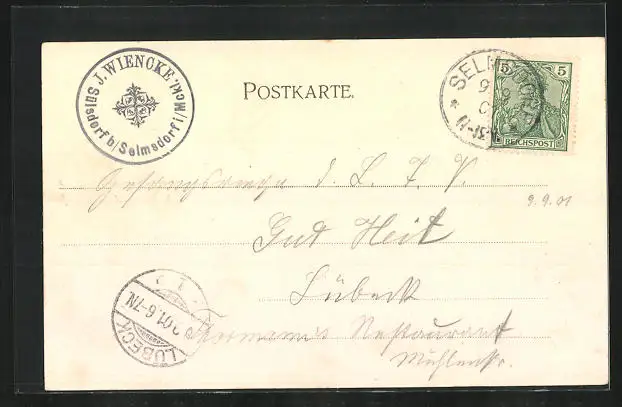 J. WIENCKE,
Sülsdorf b/Selmsdorf i/Meckl.
POSTKARTE.
SELMSDORF
5 5
REICHSPOST
d. L. T. V.
9.9.01
Gut Heil
Lübeck
Restaurant
Mühlenstr.
LÜBECK
01.6-7N.